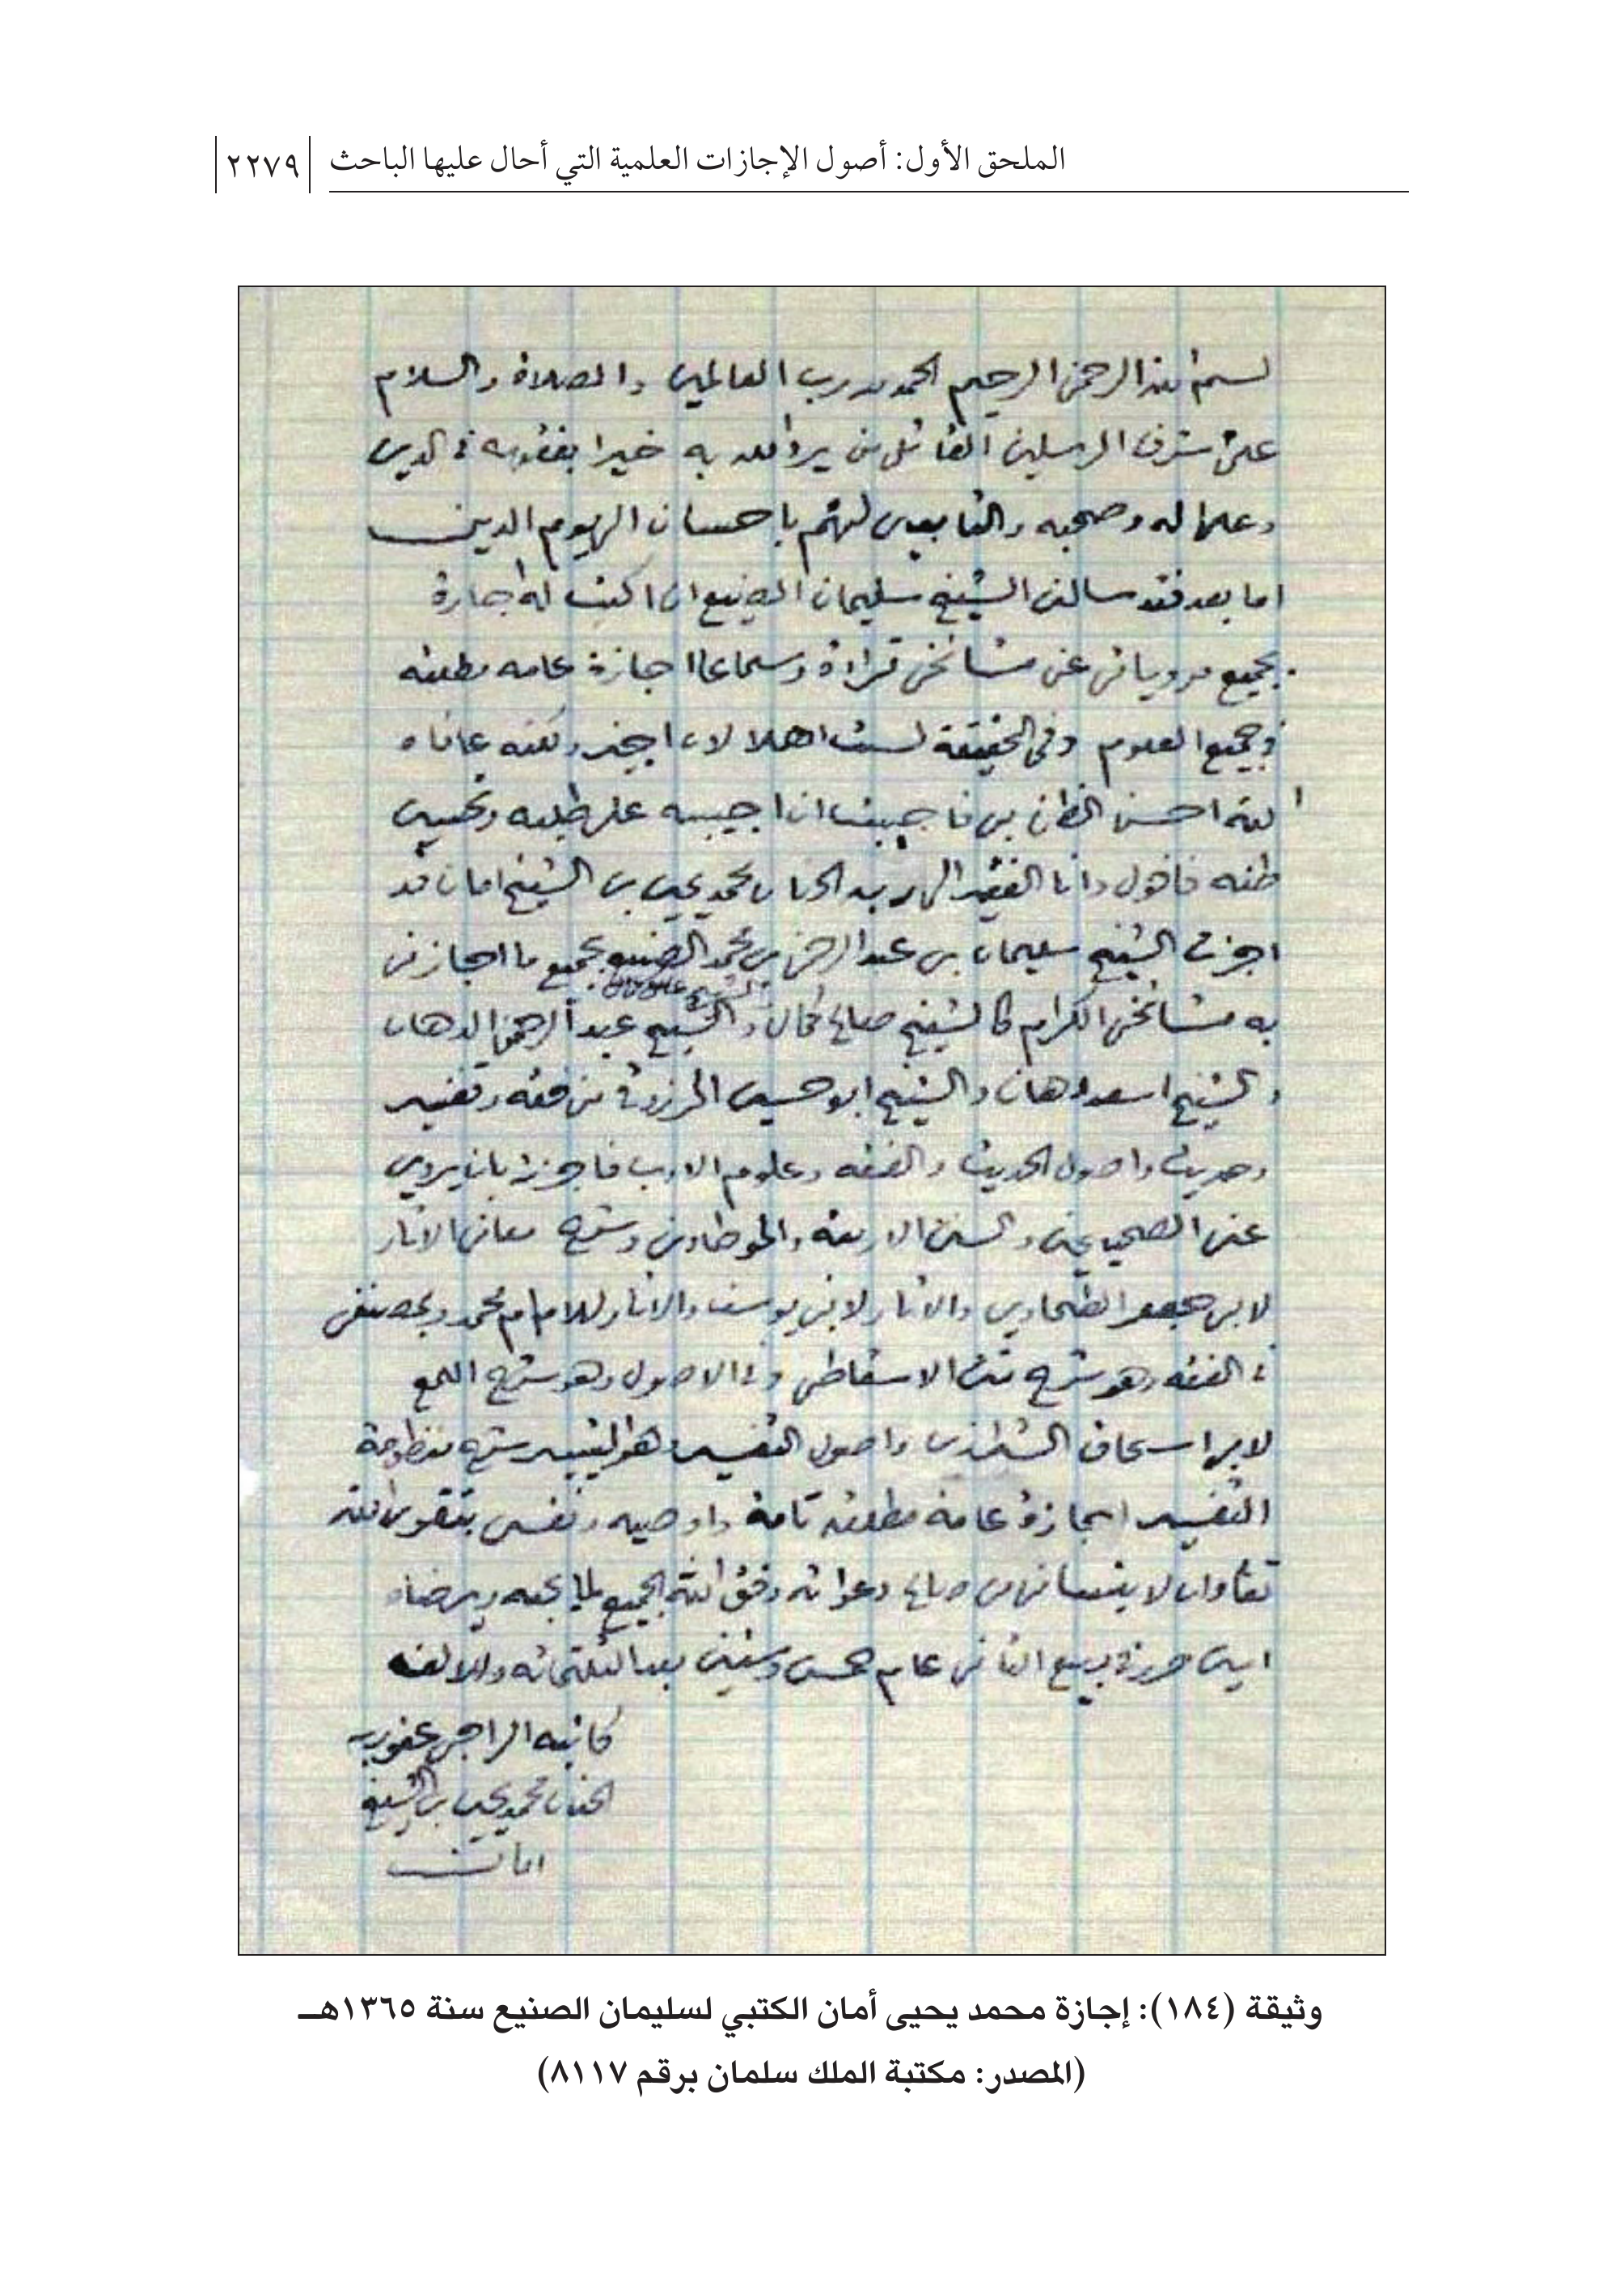 الملحق الأول: أصول الإجازات العلمية التي أحال عليها الباحث
٢٢٧٩
بسم الله الرحمن الرحيم الحمد لله رب العالمين والصلاة والسلام
على شرف المرسلين القائل من يرد الله به خيرا يفقهه في الدين
وعلى اله وصحبه والتابعين لهم باحسان الى يوم الدين
اما بعد فقد سالني الشيخ سليمان الصنيع ان اكتب له اجازة
بجميع مروياتي عن مشائخي قراءة وسماعا اجازة عامه مطلقه
في جميع العلوم وفي الحقيقة لست اهلا لان اجيز ولكنه عافاه
الله احسن الظن بي فاجبت ان اجيبه على طلبه وتحسين
ظنه فاقول وانا الفقير الى ربه الحنان محمد يحيى بن الشيخ امان قد
اجزت الشيخ سليمان بن عبد الرحمن بن محمد الصنيع بجميع ما اجازني
به مشائخي الكرام كالشيخ صالح كمال والشيخ عبد الرحمن الدهان
والشيخ اسعد دهان والشيخ ابو حسين المرزوقي من فقه وتفسير
وحديث واصول الحديث والفقه وعلوم الادب فاجزته بان يروي
عني الصحيحين والسنن الاربعة والموطاوين وشرح معاني الاثار
لابي جعفر الطحاوي والاثار لابي يوسف والاثار للامام محمد وبمصنفي
في الفقه وهو شرح متن الاسقاطي وفي الاصول وهو شرح اللمع
لابي اسحاق الشيرازي واصول التفسير وهو التيسير شرح منظومة
التفسير اجازة عامة مطلقه تامة واوصيه ونفسي بتقوى الله
تعالى وان لا ينساني من صالح دعواته وفق الله الجميع لما يحبه ويرضاه
امين حرر في ربيع الثاني عام خمس وستين بعد الثلثمائه والالف
كاتبه الراجي عفو ربه
الحنان محمد يحيى بن الشيخ
امان
وثيقة (١٨٤): إجازة محمد يحيى أمان الكتبي لسليمان الصنيع سنة ١٣٦٥هـ
(المصدر: مكتبة الملك سلمان برقم ٨١١٧)